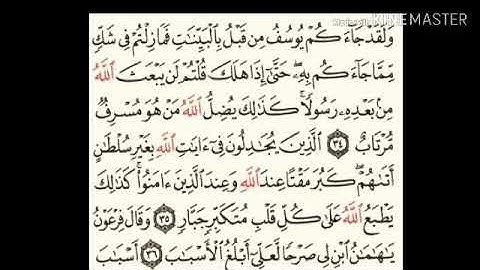 Made with KINEMASTER
وَلَقَدْ جَآءَكُمْ يُوسُفُ مِن قَبْلُ بِٱلْبَيِّنَٰتِ فَمَا زِلْتُمْ فِى شَكٍّ
مِّمَّا جَآءَكُم بِهِۦ ۖ حَتَّىٰٓ إِذَا هَلَكَ قُلْتُمْ لَن يَبْعَثَ ٱللَّهُ
مِنۢ بَعْدِهِۦ رَسُولًا ۚ كَذَٰلِكَ يُضِلُّ ٱللَّهُ مَنْ هُوَ مُسْرِفٌ
مُّرْتَابٌ ٣٤ ٱلَّذِينَ يُجَٰدِلُونَ فِىٓ ءَايَٰتِ ٱللَّهِ بِغَيْرِ سُلْطَٰنٍ
أَتَىٰهُمْ ۖ كَبُرَ مَقْتًا عِندَ ٱللَّهِ وَعِندَ ٱلَّذِينَ ءَامَنُوا۟ ۚ كَذَٰلِكَ
يَطْبَعُ ٱللَّهُ عَلَىٰ كُلِّ قَلْبِ مُتَكَبِّرٍ جَبَّارٍ ٣٥ وَقَالَ فِرْعَوْنُ
يَٰهَٰمَٰنُ ٱبْنِ لِى صَرْحًا لَّعَلِّىٓ أَبْلُغُ ٱلْأَسْبَٰبَ ٣٦ أَسْبَٰبَ